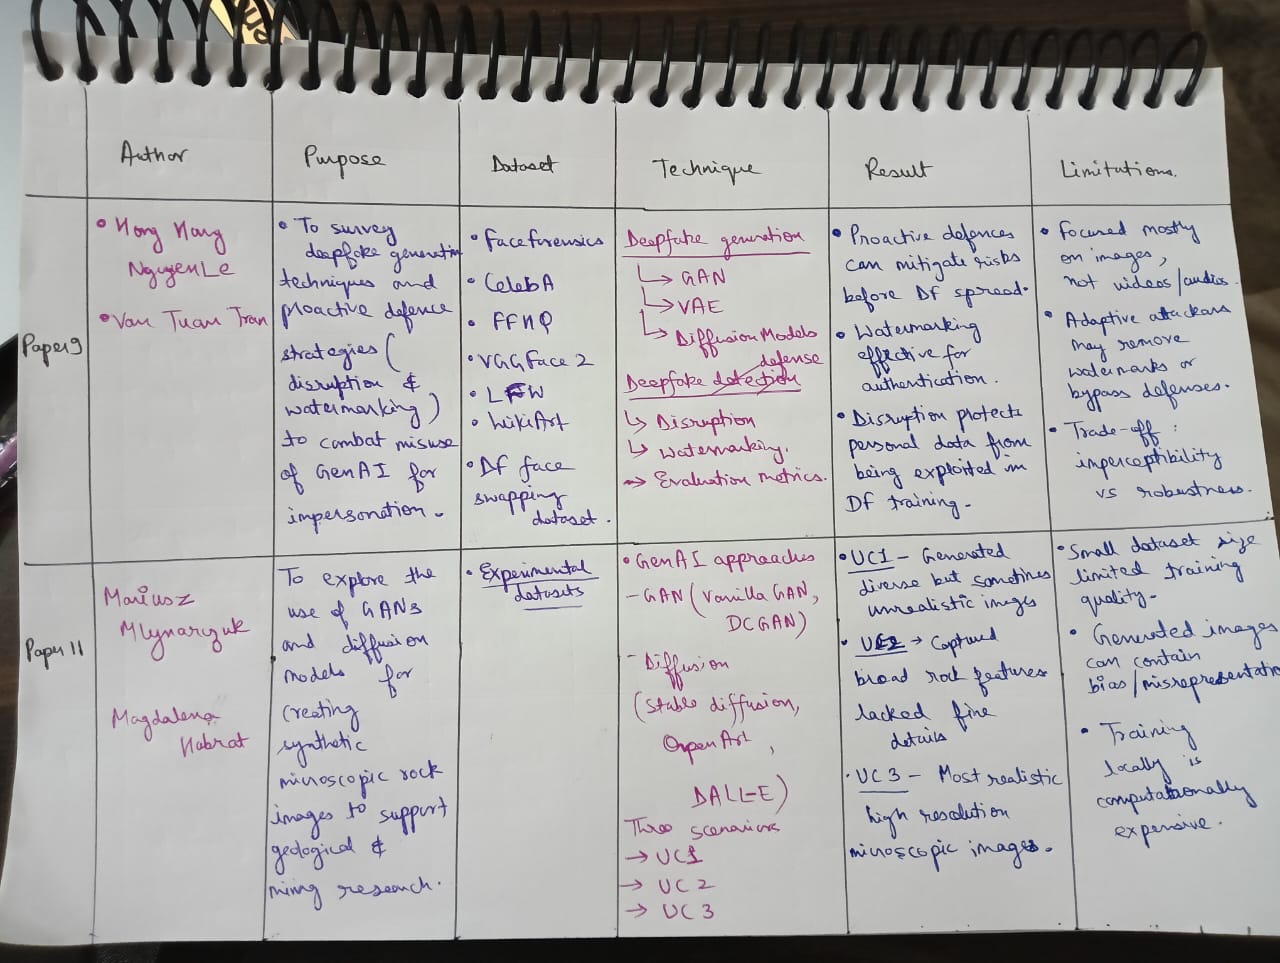 Author
Purpose
Dataset
Technique
Result
Limitations.
Paper 9
• Hong Hang
Nguyen Le
• Van Tuan Tran
• To survey
deepfake generation
techniques and
proactive defence
strategies (
disruption &
watermarking)
to combat misuse
of GenAI for
impersonation.
• Faceforensics
• CelebA
• FFHQ
• VGGFace 2
• LFW
• WikiArt
• Df face
swapping
dataset.
Deepfake generation
↳ GAN
↳ VAE
↳ Diffusion Models
defense
Deepfake detection
↳ Disruption
↳ Watermarking.
→ Evaluation metrics.
• Proactive defences
can mitigate risks
before Df spread.
• Watermarking
effective for
authentication.
• Disruption protects
personal data from
being exploited in
Df training.
• Focused mostly
on images,
not videos/audios.
• Adaptive attackers
may remove
watermarks or
bypass defenses.
• Trade-off :
imperceptibility
vs robustness.
Paper 11
Mariusz
Mlynarczuk
Magdalena
Habrat
To explore the
use of GANs
and diffusion
models for
creating
synthetic
microscopic rock
images to support
geological &
mining research.
• Experimental
datasets
• GenAI approaches
- GAN (Vanilla GAN,
DCGAN)
- Diffusion
(stable diffusion,
OpenArt,
DALL-E)
Three scenarios
→ UC1
→ UC2
→ UC3
• UC1 - Generated
diverse but sometimes
unrealistic images
• UC2 → Captured
broad rock features
lacked fine
details
• UC3 - Most realistic
high resolution
microscopic images.
• Small dataset size
limited training
quality.
• Generated images
can contain
bias/misrepresentatio
• Training
locally is
computationally
expensive.